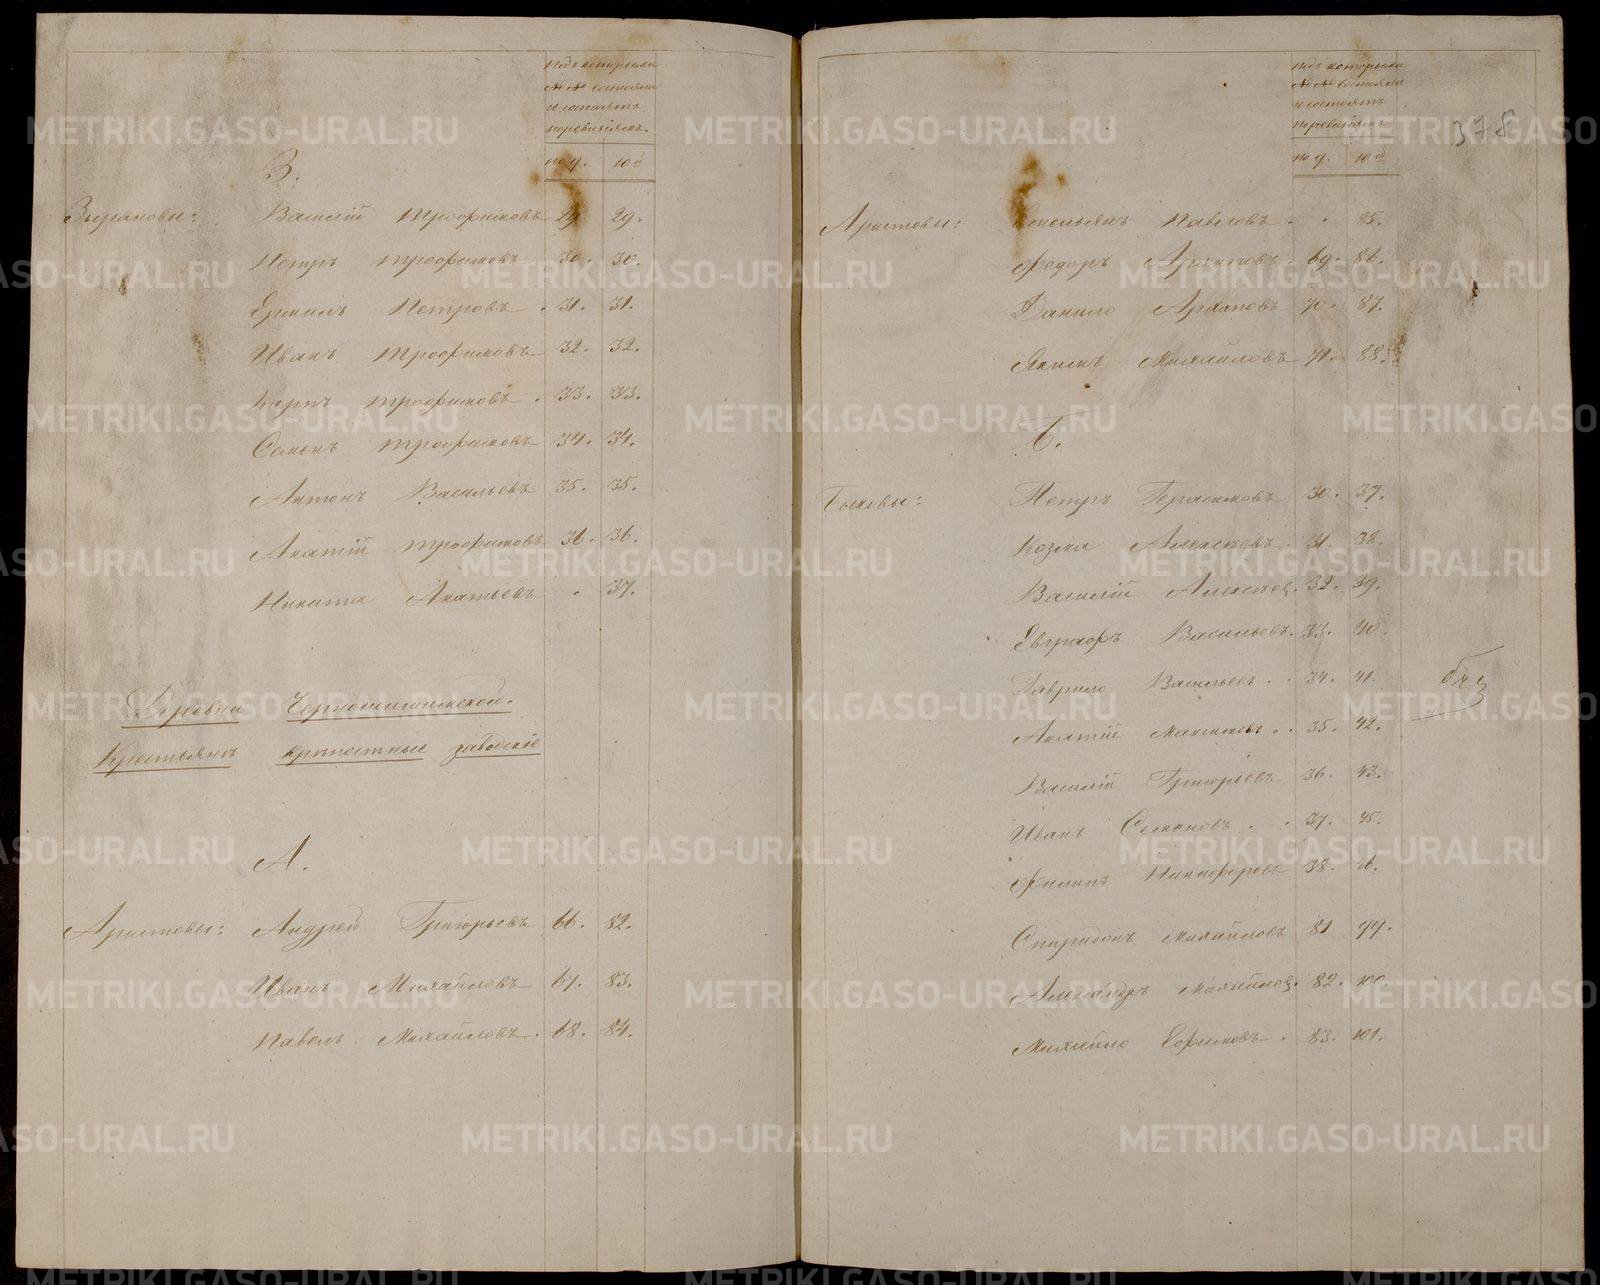 Подъ которыми
№№ состояли
и состоятъ
по ревизіямъ.
по 9. 10й
З.
Зыряновы: Василій Трофимовъ 29. 29.
Петръ Трофимовъ 30. 30.
Ермилъ Петровъ . 31. 31.
Иванъ Трофимовъ 32. 32.
Карпъ Трофимовъ . 33. 33.
Семенъ Трофимовъ 34. 34.
Антонъ Васильевъ 35. 35.
Акатій Трофимовъ 36. 36.
Никита Акатьевъ . 37.
Деревни
Крестьянъ крѣпостные заводскіе
А.
Аристовы: Андрей Григорьевъ 66. 82.
Иванъ Михайловъ 67. 83.
Павелъ Михайловъ . 68. 84.
Подъ которыми
№№ состояли
и состоятъ
по ревизіямъ
по 9. 10й
378
Аристовы: Емельянъ Павловъ . . 85.
Федоръ Архиповъ . 69. 86.
Данило Архиповъ 70. 87.
Якимъ Михайловъ 71. 88.
Б.
Быковы: Петръ Герасимовъ 30. 37.
Козма Алексѣевъ . 31. 38.
Василій Алексѣев. 32. 39.
Евграфъ Васильевъ. 33. 40.
Гаврило Васильевъ . . 34. 41.
Акатій Максимовъ . . 35. 42.
Василій Григорьевъ 36. 43.
Иванъ Семеновъ . . 37. 45.
Филипъ Никифоровъ 38. 46.
Спиридонъ Михайловъ 81 99.
Александръ Михайлов. 82. 100.
Михайло Ефимовъ . 83. 101.
METRIKI.GASO-URAL.RU